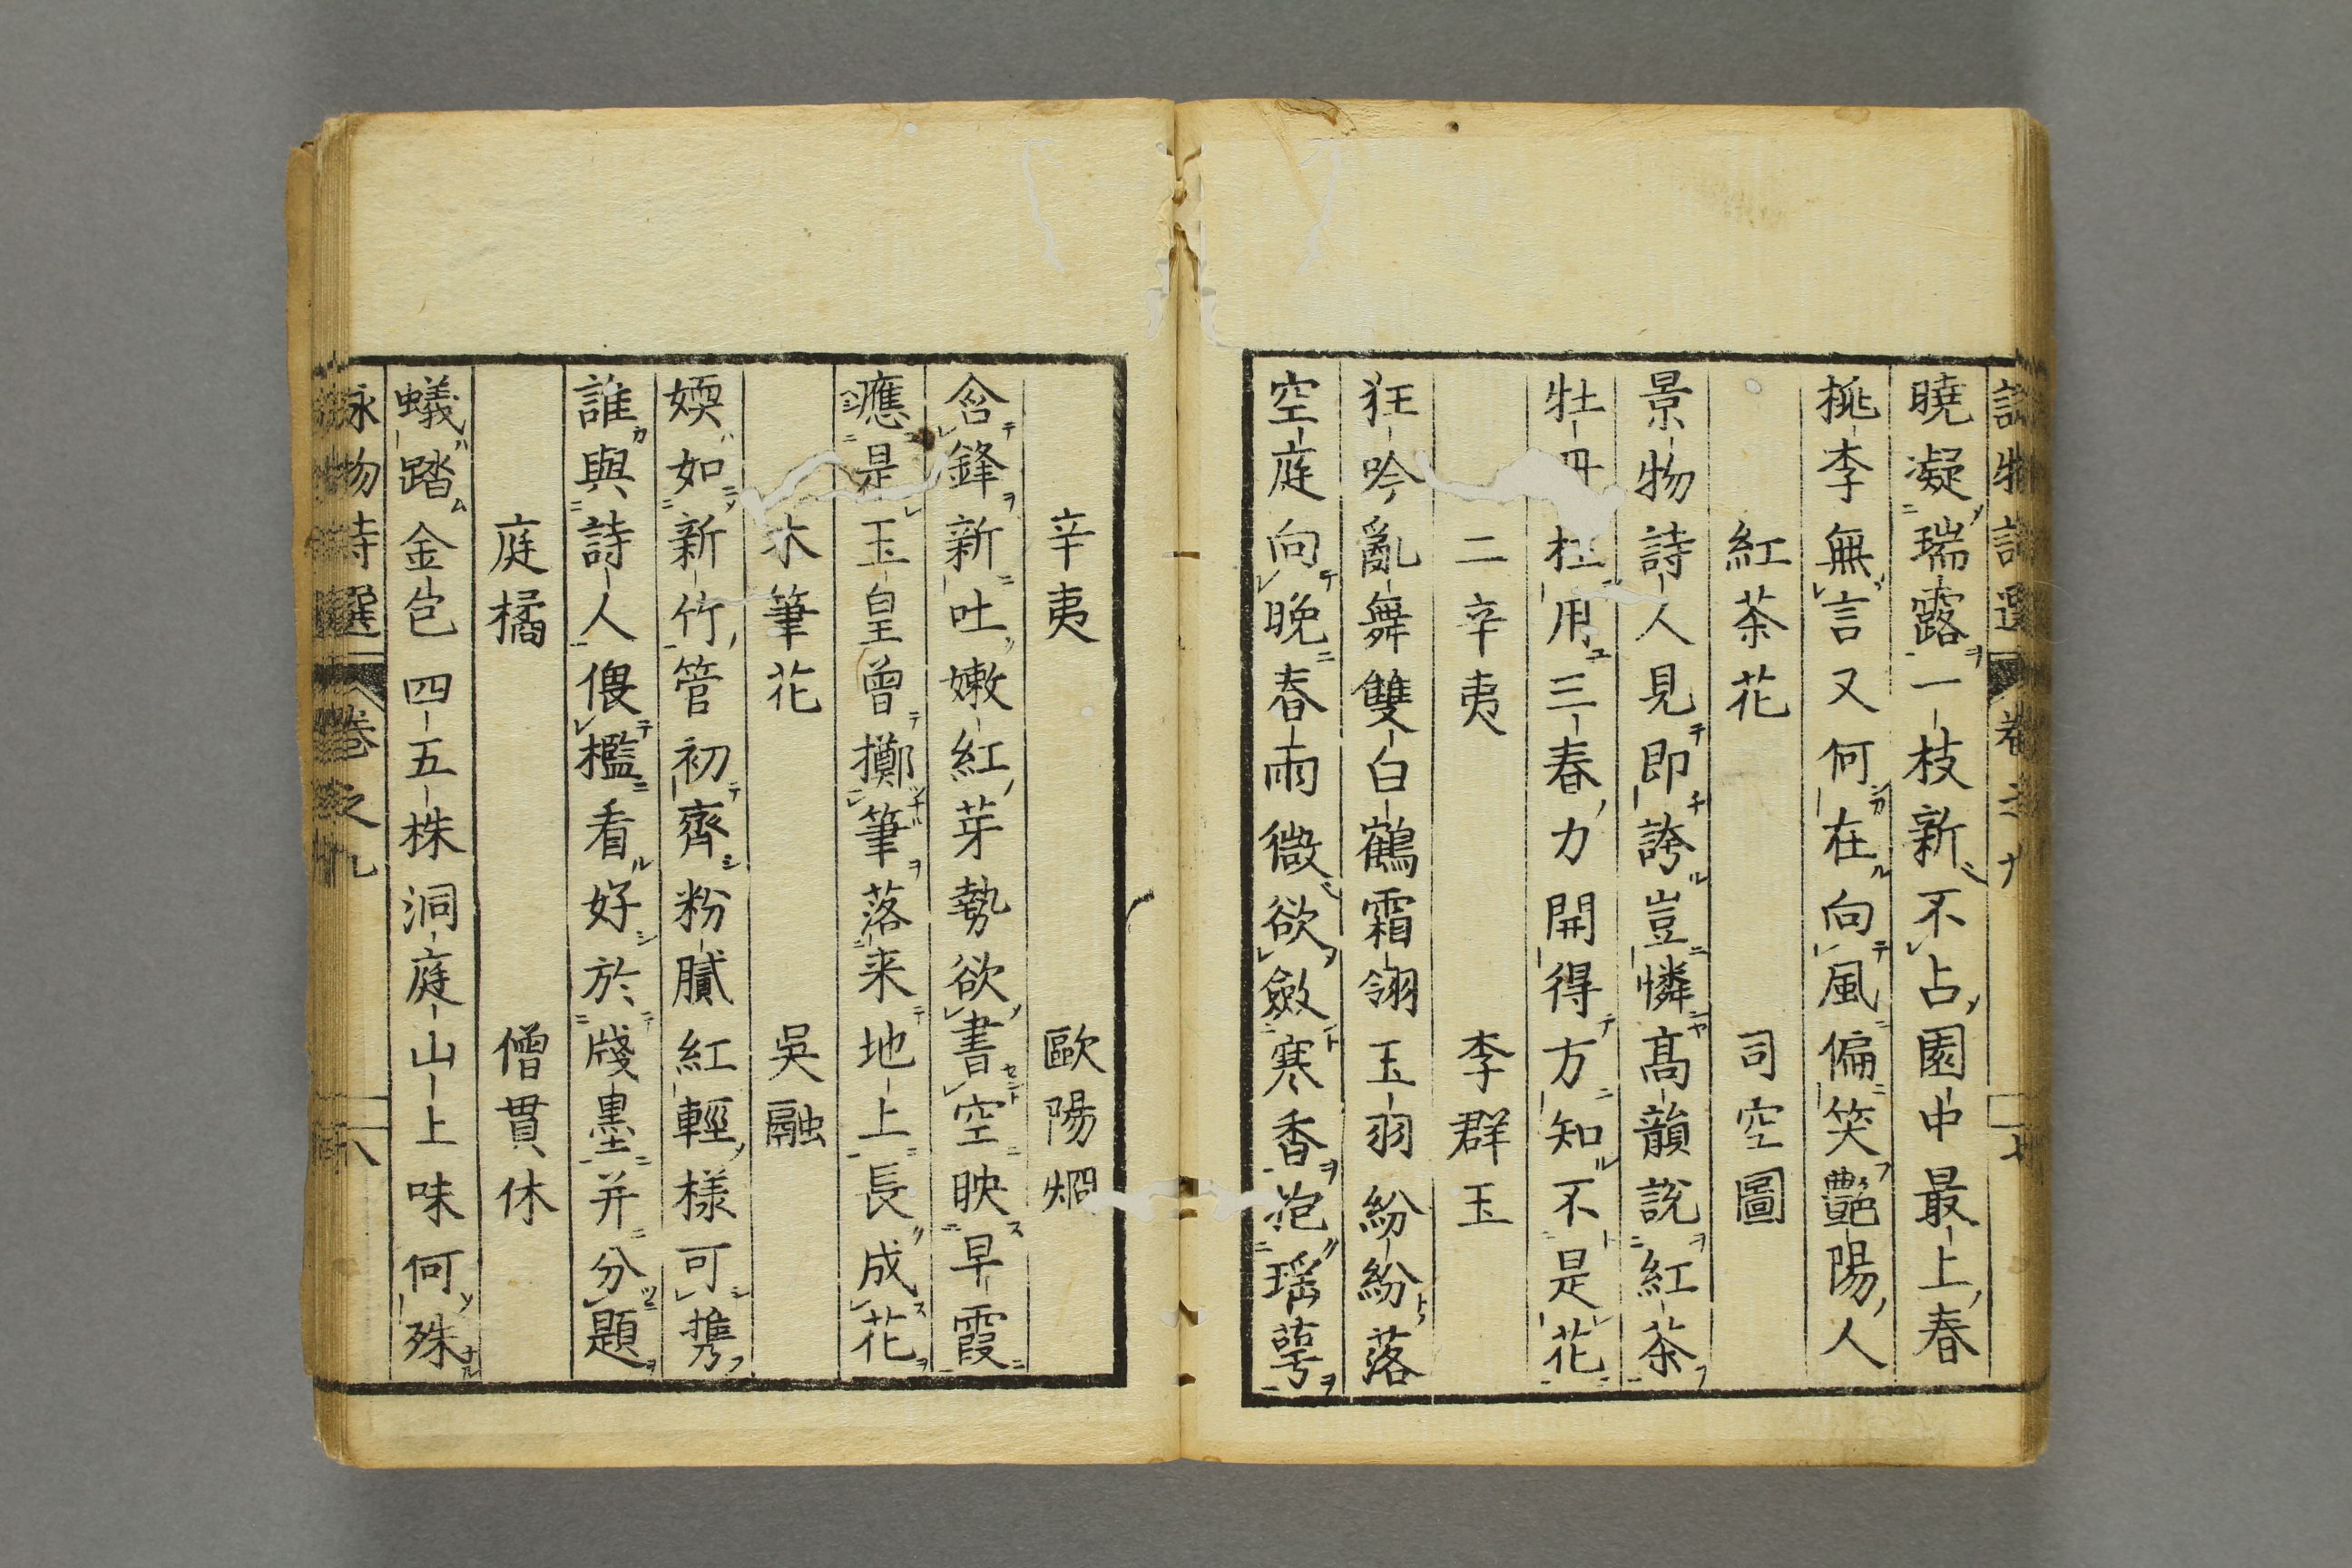 曉凝瑞露一枝新不占園中最上春
桃李無言又何在向風偏笑艷陽人
紅茶花 司空圖
景物詩人見即誇豈憐髙韻說紅茶
牡丹枉用三春力開得方知不是花
二辛夷 李群玉
狂吟亂舞雙白鶴霜翎玉羽紛紛落
空庭向晚春雨微欲斂寒香抱瑶萼
辛夷 歐陽烱
含鋒新吐嫩紅芽勢欲書空映早霞
應是玉皇曾擲筆落来地上長成花
木筆花 吳融
嫩如新竹管初齊粉膩紅輕様可携
誰與詩人偎檻看好於牋墨并分題
庭橘 僧貫休
蟻踏金包四五株洞庭山上味何殊
詠物詩選 卷之九